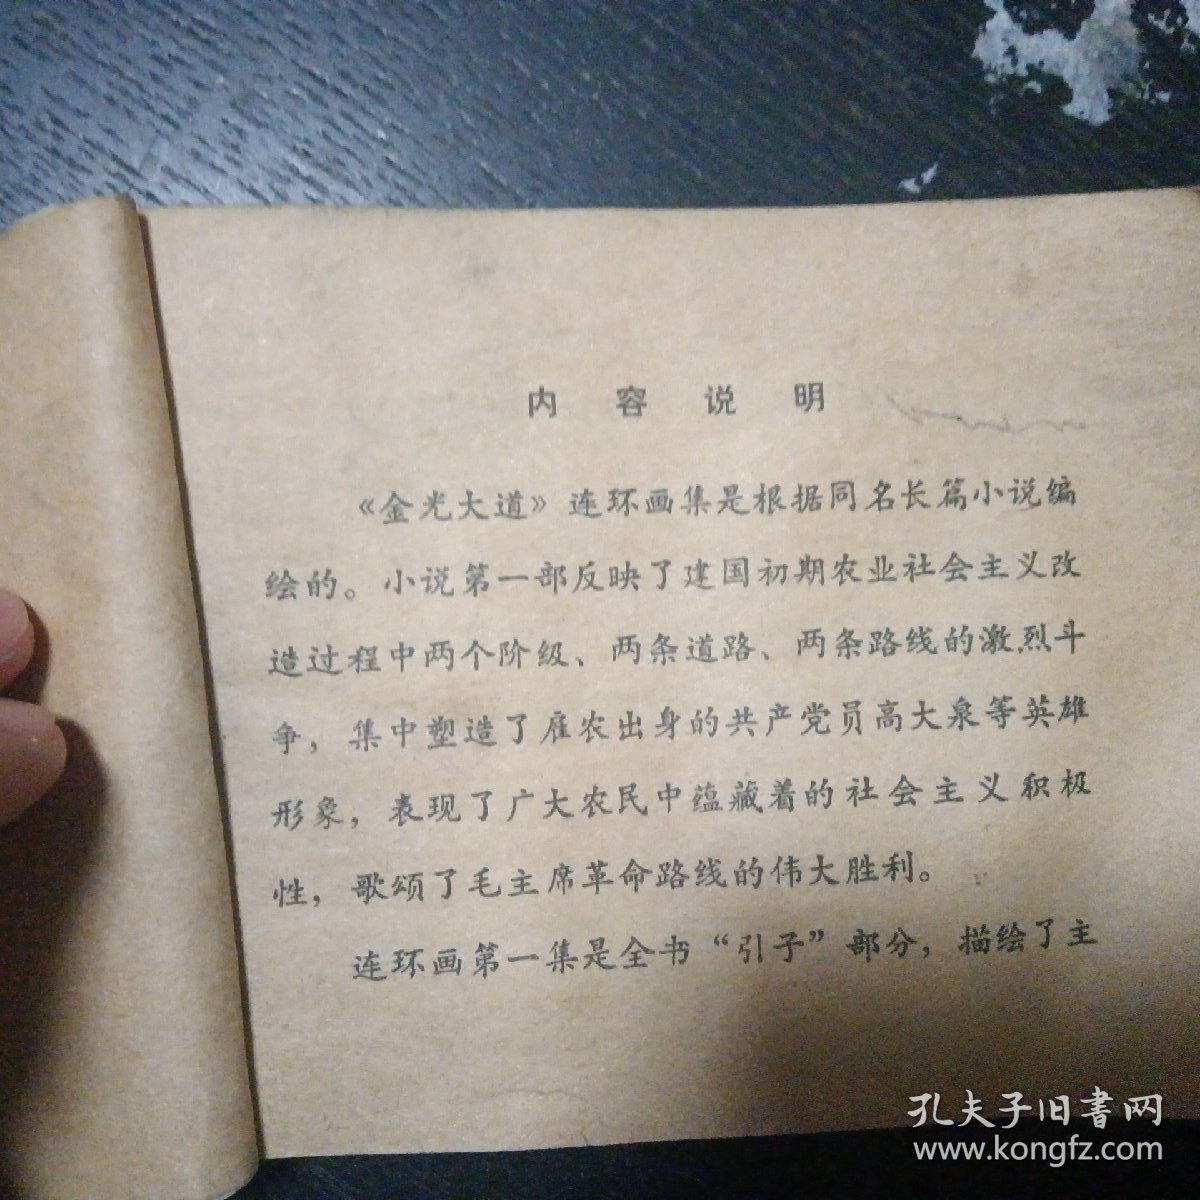 内容说明
《金光大道》连环画集是根据同名长篇小说编
绘的。小说第一部反映了建国初期农业社会主义改
造过程中两个阶级、两条道路、两条路线的激烈斗
争，集中塑造了雇农出身的共产党员高大泉等英雄
形象，表现了广大农民中蕴藏着的社会主义积极
性，歌颂了毛主席革命路线的伟大胜利。
连环画第一集是全书“引子”部分，描绘了主
孔夫子旧書网
www.kongfz.com